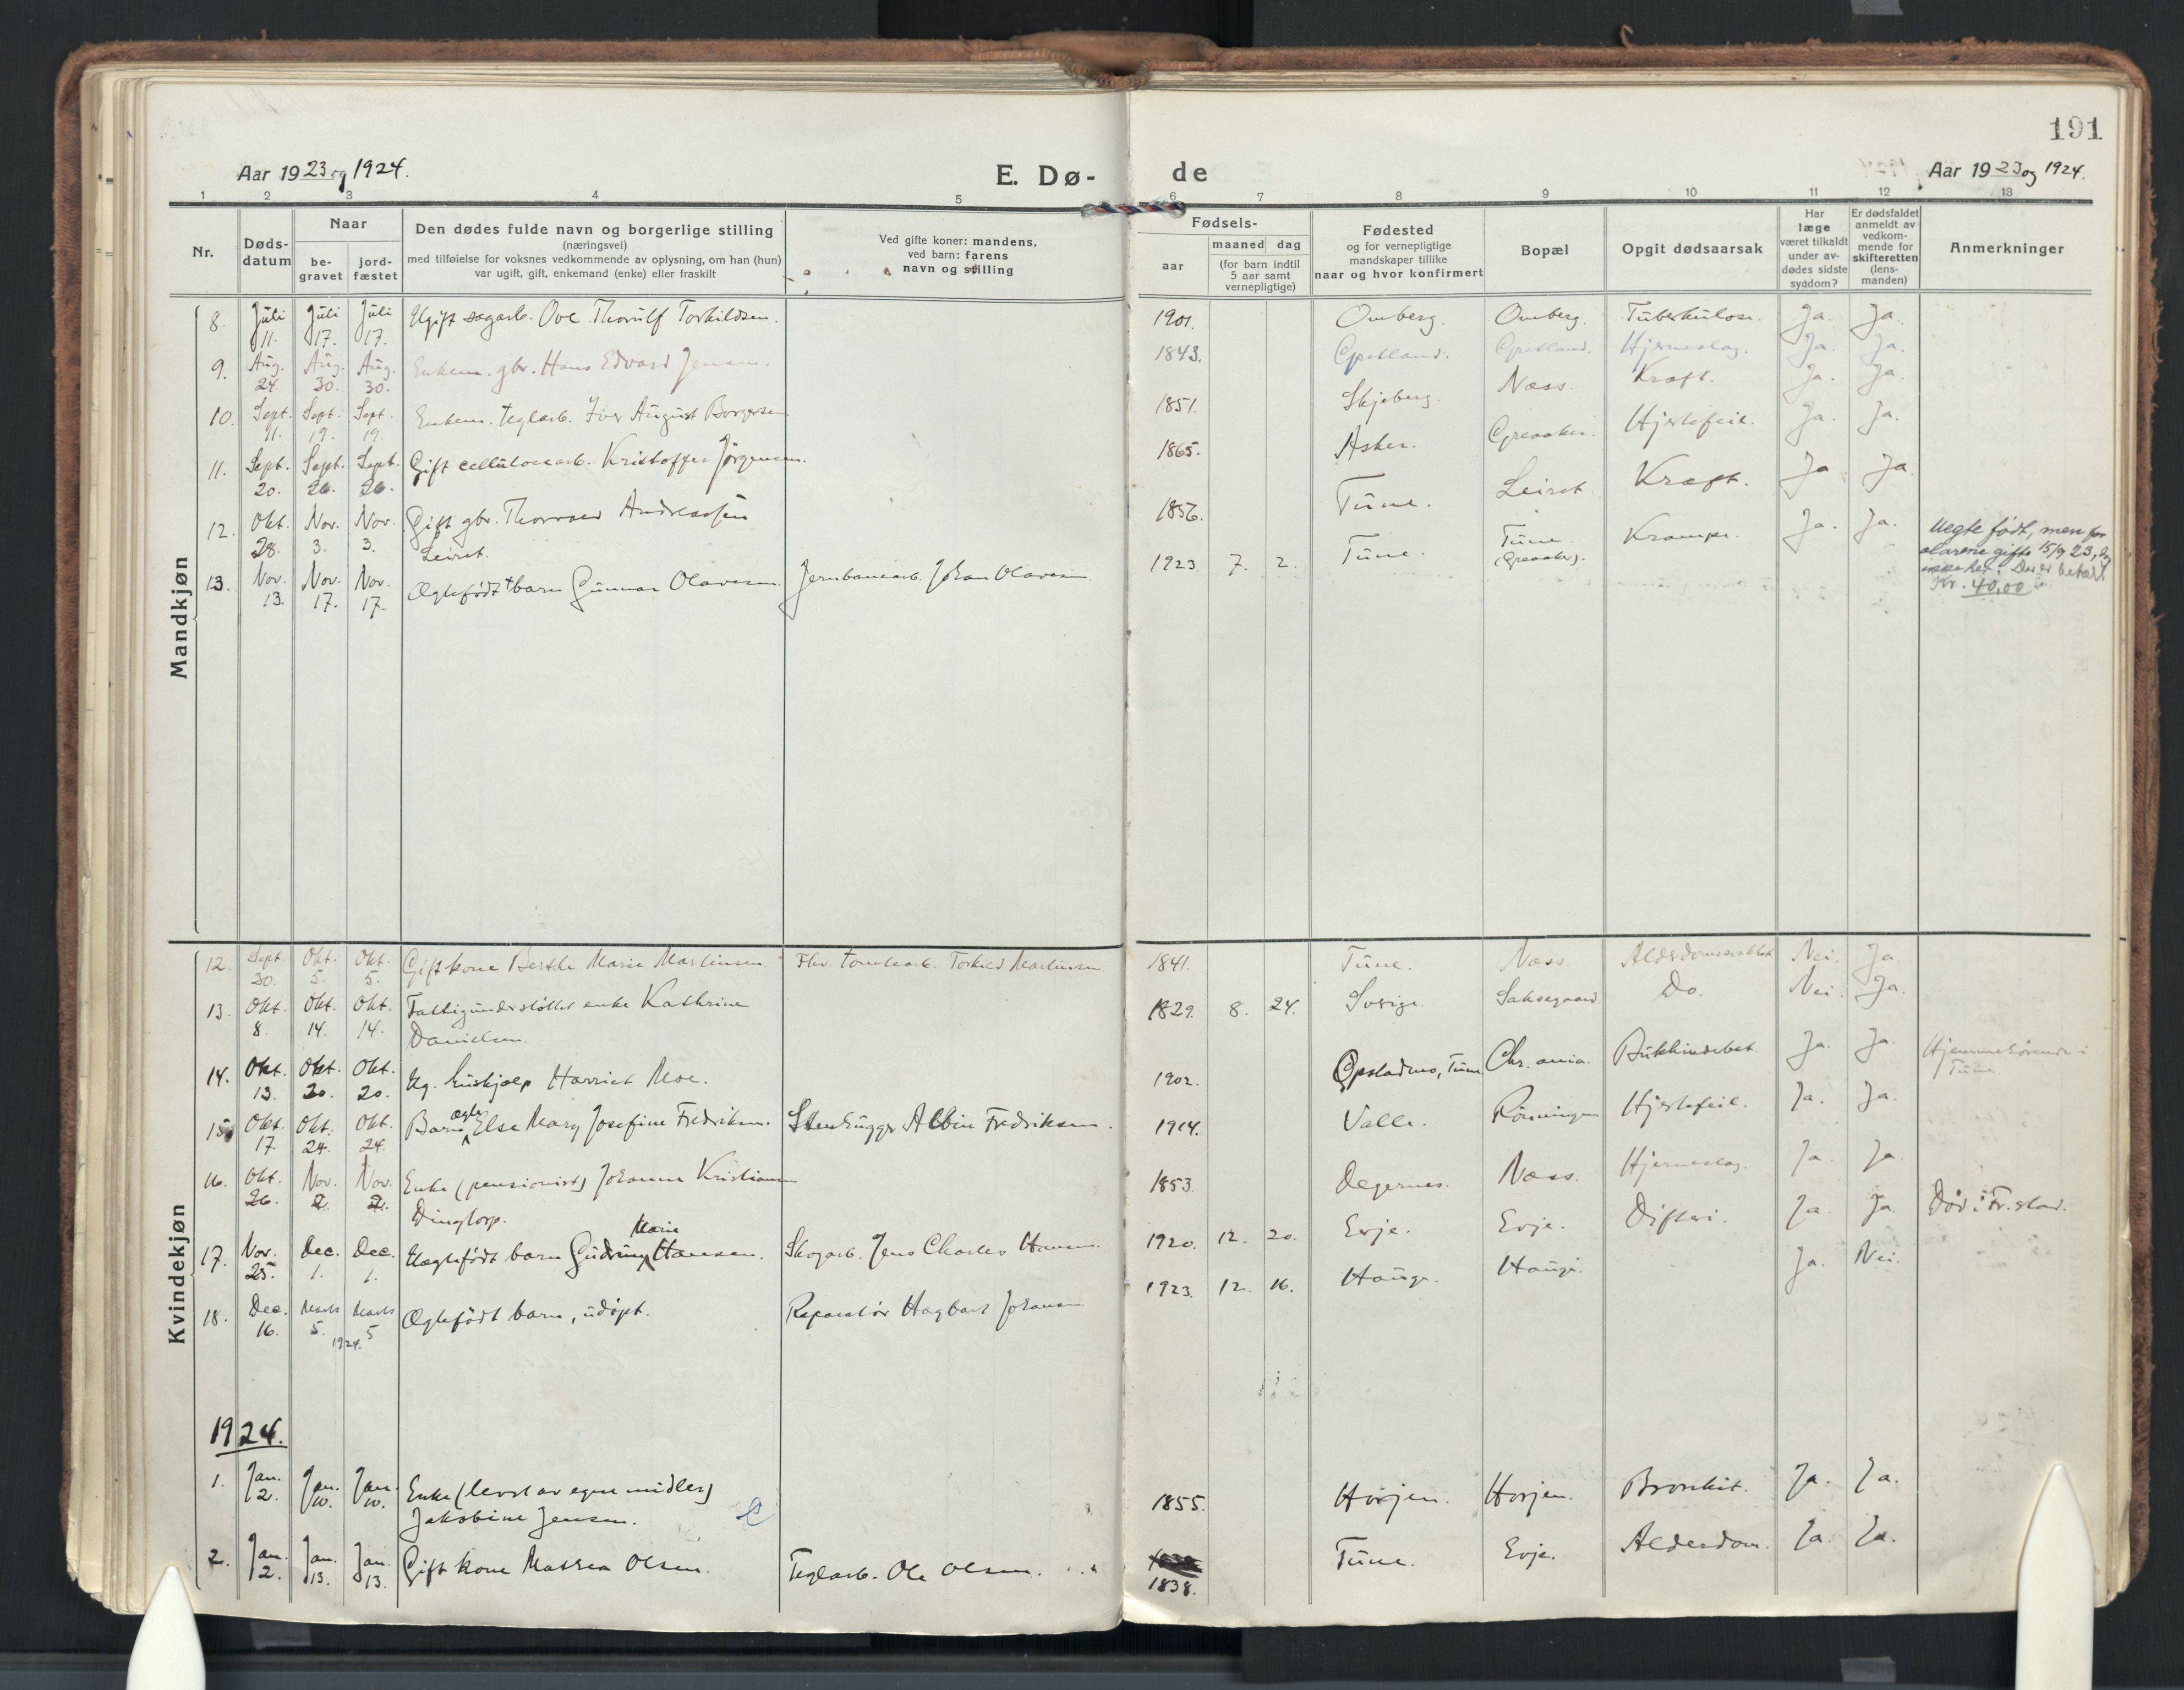 191
Aar 1923 og 1924.
E. Dø-
de
Aar 1923 og 1924.
1 2 3 4 5 6 7 8 9 10 11 12 13
Nr.
Døds-
datum
Naar
be-
gravet
jord-
fæstet
Den dødes fulde navn og borgerlige stilling
(næringsvei)
med tilføielse for voksnes vedkommende av oplysning, om han (hun)
var ugift, gift, enkemand (enke) eller fraskilt
Ved gifte koner: mandens,
ved barn: farens
navn og stilling
Fødsels-
aar
maaned dag
(for barn indtil
5 aar samt
vernepligtige)
Fødested
og for vernepligtige
mandskaper tillike
naar og hvor konfirmert
Bopæl
Opgit dødsaarsak
Har
læge
været tilkaldt
under av-
dødes sidste
sygdom?
Er dødsfaldet
anmeldt av
vedkom-
mende for
skifteretten
(lens-
manden)
Anmerkninger
Mandkjøn
8. Juli 11. Juli 17. Juli 17. Ugift sagarb. Ove Thorulf Torkildsen. 1901. Omberg. Omberg. Tuberkulose. Ja. Ja.
9. Aug. 24. Aug. 30. Aug. 30. Enkem. gbr. Hans Edvard Jensen. 1843. Hjerneslag. Ja. Ja.
10. Sept. 11. Sept. 19. Sept. 19. Enkem. teglarb. Iver August Borgersen 1851. Skjeberg. Næss. Kræft. Ja. Ja.
11. Sept. 20. Sept. 26. Sept. 26. Gift cellulosearb. Kristoffer Jørgensen. 1865. Asker. Greaaker. Hjertefeil. Ja. Ja.
12. Okt. 28. Nov. 3. Nov. 3. Gift gbr. Thorvald Andreassen
Leiret. 1856. Tune. Leiret. Kræft. Ja Ja
13. Nov. 13. Nov. 17. Nov. 17. Ægtefødt barn Gunnar Olavesen. Jernbanearb. Johan Olavesen. 1923 7. 2. Tune. Tune
(Greaaker). Krampe. Ja. Ja.
Uegte født, men for
ældrene gifte 15/9 23,
Der er betalt
Kr. 40,00
Kvindekjøn
12. Sept. 30. Okt. 5. Okt. 5. Gift kone Berthe Marie Martinsen. Fhv. tomtearb. Torkild Martinsen 1841. Tune. Næss. Alderdomssvakhet Nei. Ja
13. Okt. 8. Okt. 14. Okt. 14. Fattigunderstøttet enke Kathrine
Danielsen. 1829. 8. 24. Sverige. Saksegaard. Do. Nei. Ja.
14. Okt. 13. Okt. 20. Okt. 20. Ug. hushjælp Harriet Moe. 1902. Opstadmo, Tune Chr.ania. Bukhindebet. Ja. Ja. Hjemmehørende i
Tune.
15. Okt. 17. Okt. 24. Okt. 24. Barn ægte Else Mary Josefine Fredriksen. Stenhugger Albin Fredriksen. 1914. Valle. Rønningen Hjertefeil. Ja. Ja.
16. Okt. 26. Nov. 2. Nov. 2. Enke (pensionist) Johanne Kristiansen
Dingtorp. 1853. Degernes. Næss. Hjerneslag. Ja. Ja
17. Nov. 25. Dec. 1. Dec. 1. Uægtefødt barn Gudrun Marie Hansen. Skogarb. Jens Charles Hansen. 1920. 12. 20. Evje. Evje. Difteri. Ja. Ja. Død i Fr.stad.
18. Dec. 16. Marts 5. Marts 5 1924. Ægtefødt barn, udøpt. Reparatør Hagbart Johansen. 1923. 12. 16. Hauge. Hauge. Ja. Nei.
1924.
1. Jan. 2. Jan. 10. Jan. 10. Enke (levet av egne midler)
Jakobine Jensen. 1855. Horjen. Horjen. Bronkit. Ja. Ja.
2. Jan. 2. Jan. 13. Jan. 13. Gift kone Mathea Olsen. Teglarb. Ole Olsen. 1838. Tune. Evje. Alderdom. Ja. Ja.